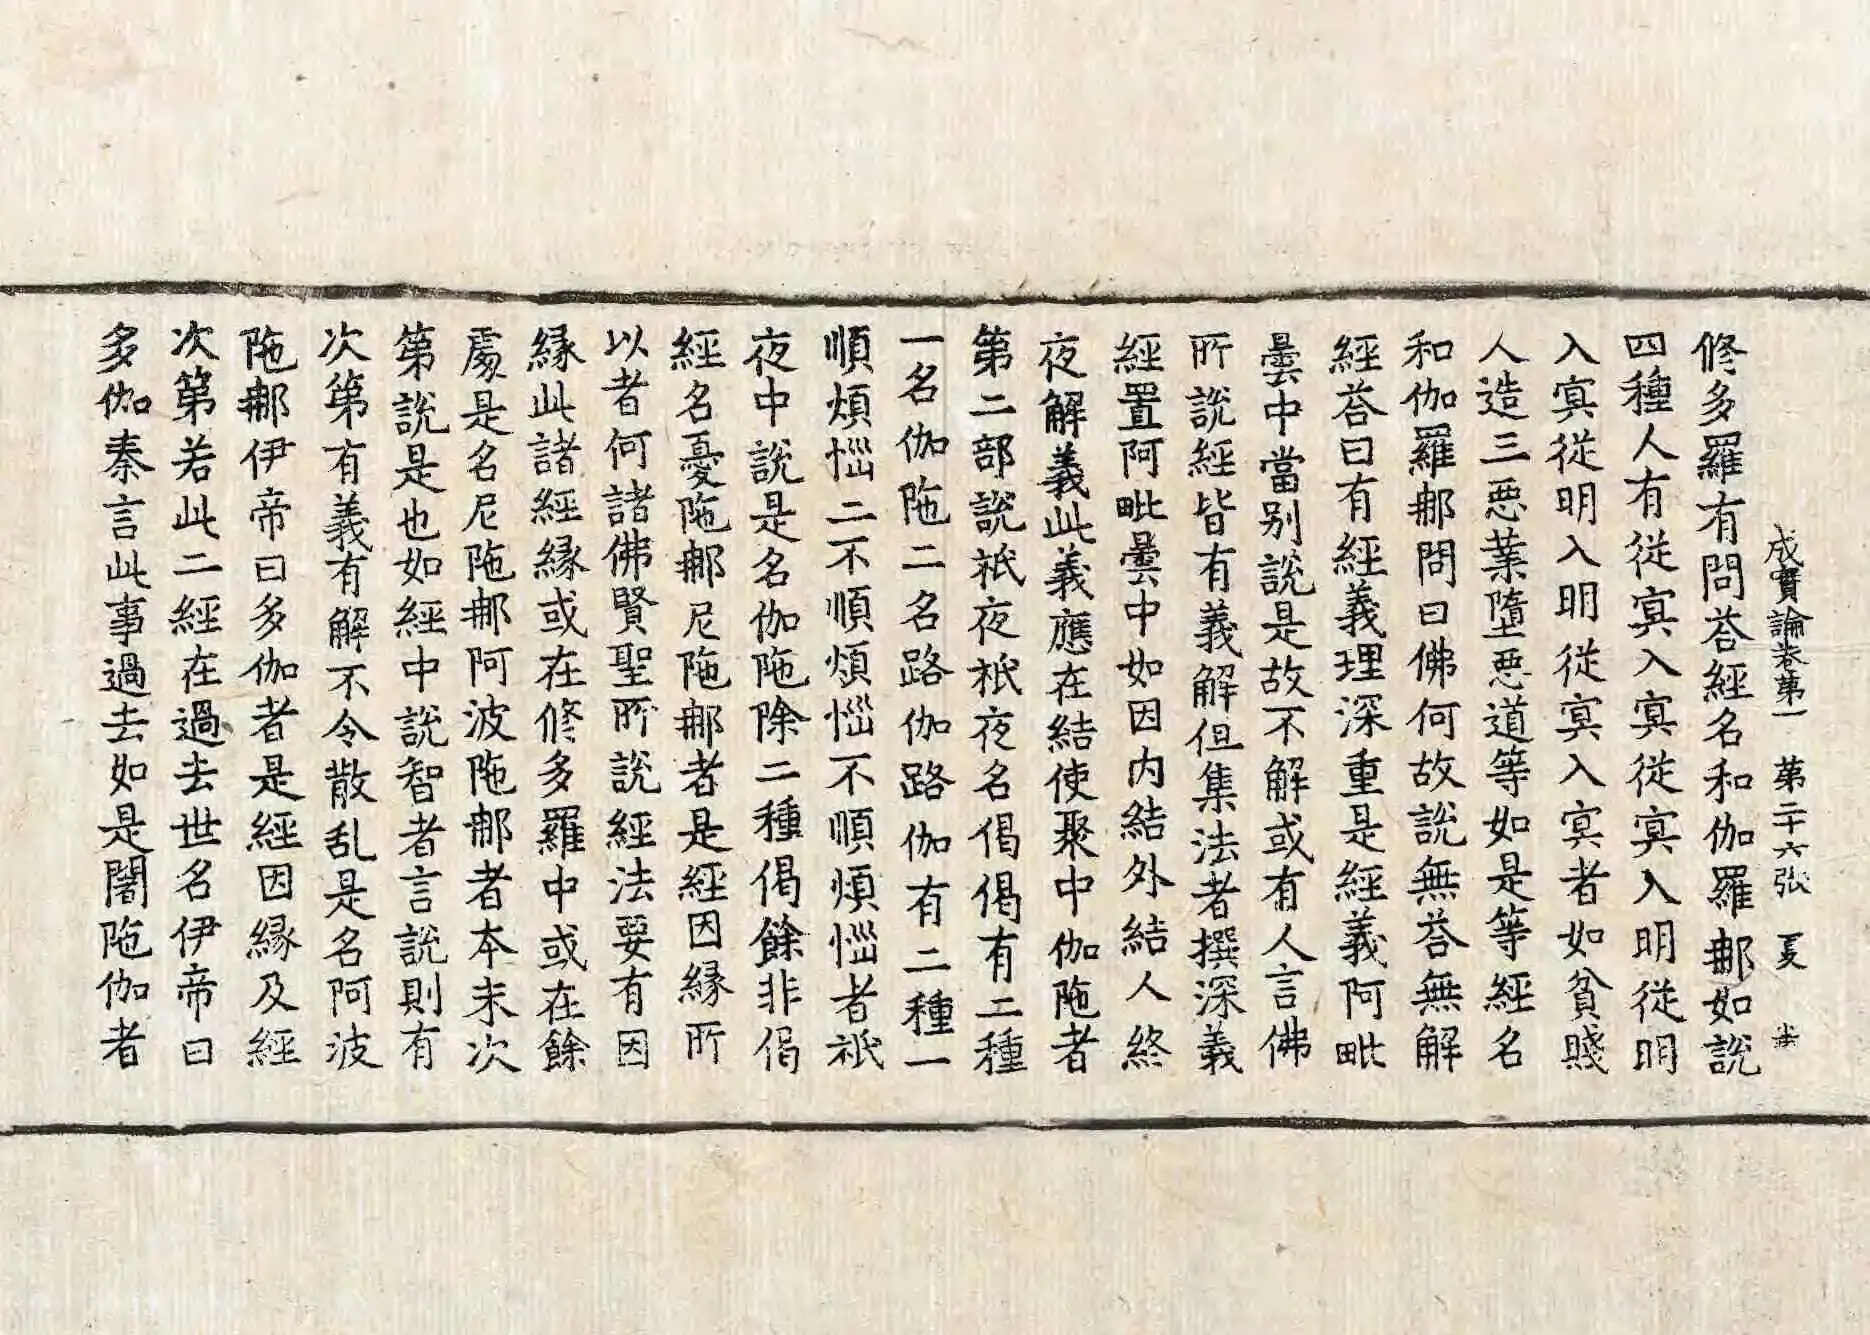 成實論卷第一 第二十六張 夏
修多羅有問荅經名和伽羅那如說
四種人有從冥入冥從冥入明從明
入冥從明入明從冥入冥者如貧賤
人造三惡業墮惡道等如是等經名
和伽羅那問曰佛何故說無荅無解
經荅曰有經義理深重是經義阿毗
曇中當别說是故不解或有人言佛
所說經皆有義解但集法者撰深義
經置阿毗曇中如因内結外結人終
夜解義此義應在結使聚中伽陁者
第二部說祇夜祇夜名偈偈有二種
一名伽陁二名路伽路伽有二種一
順煩惱二不順煩惱不順煩惱者祇
夜中說是名伽陁除二種偈餘非偈
經名憂陁那尼陁那者是經因緣所
以者何諸佛賢聖所說經法要有因
緣此諸經緣或在修多羅中或在餘
處是名尼陁那阿波陁那者本末次
第說是也如經中說智者言說則有
次第有義有解不令散乱是名阿波
陁那伊帝曰多伽者是經因緣及經
次第若此二經在過去世名伊帝曰
多伽秦言此事過去如是闍陁伽者